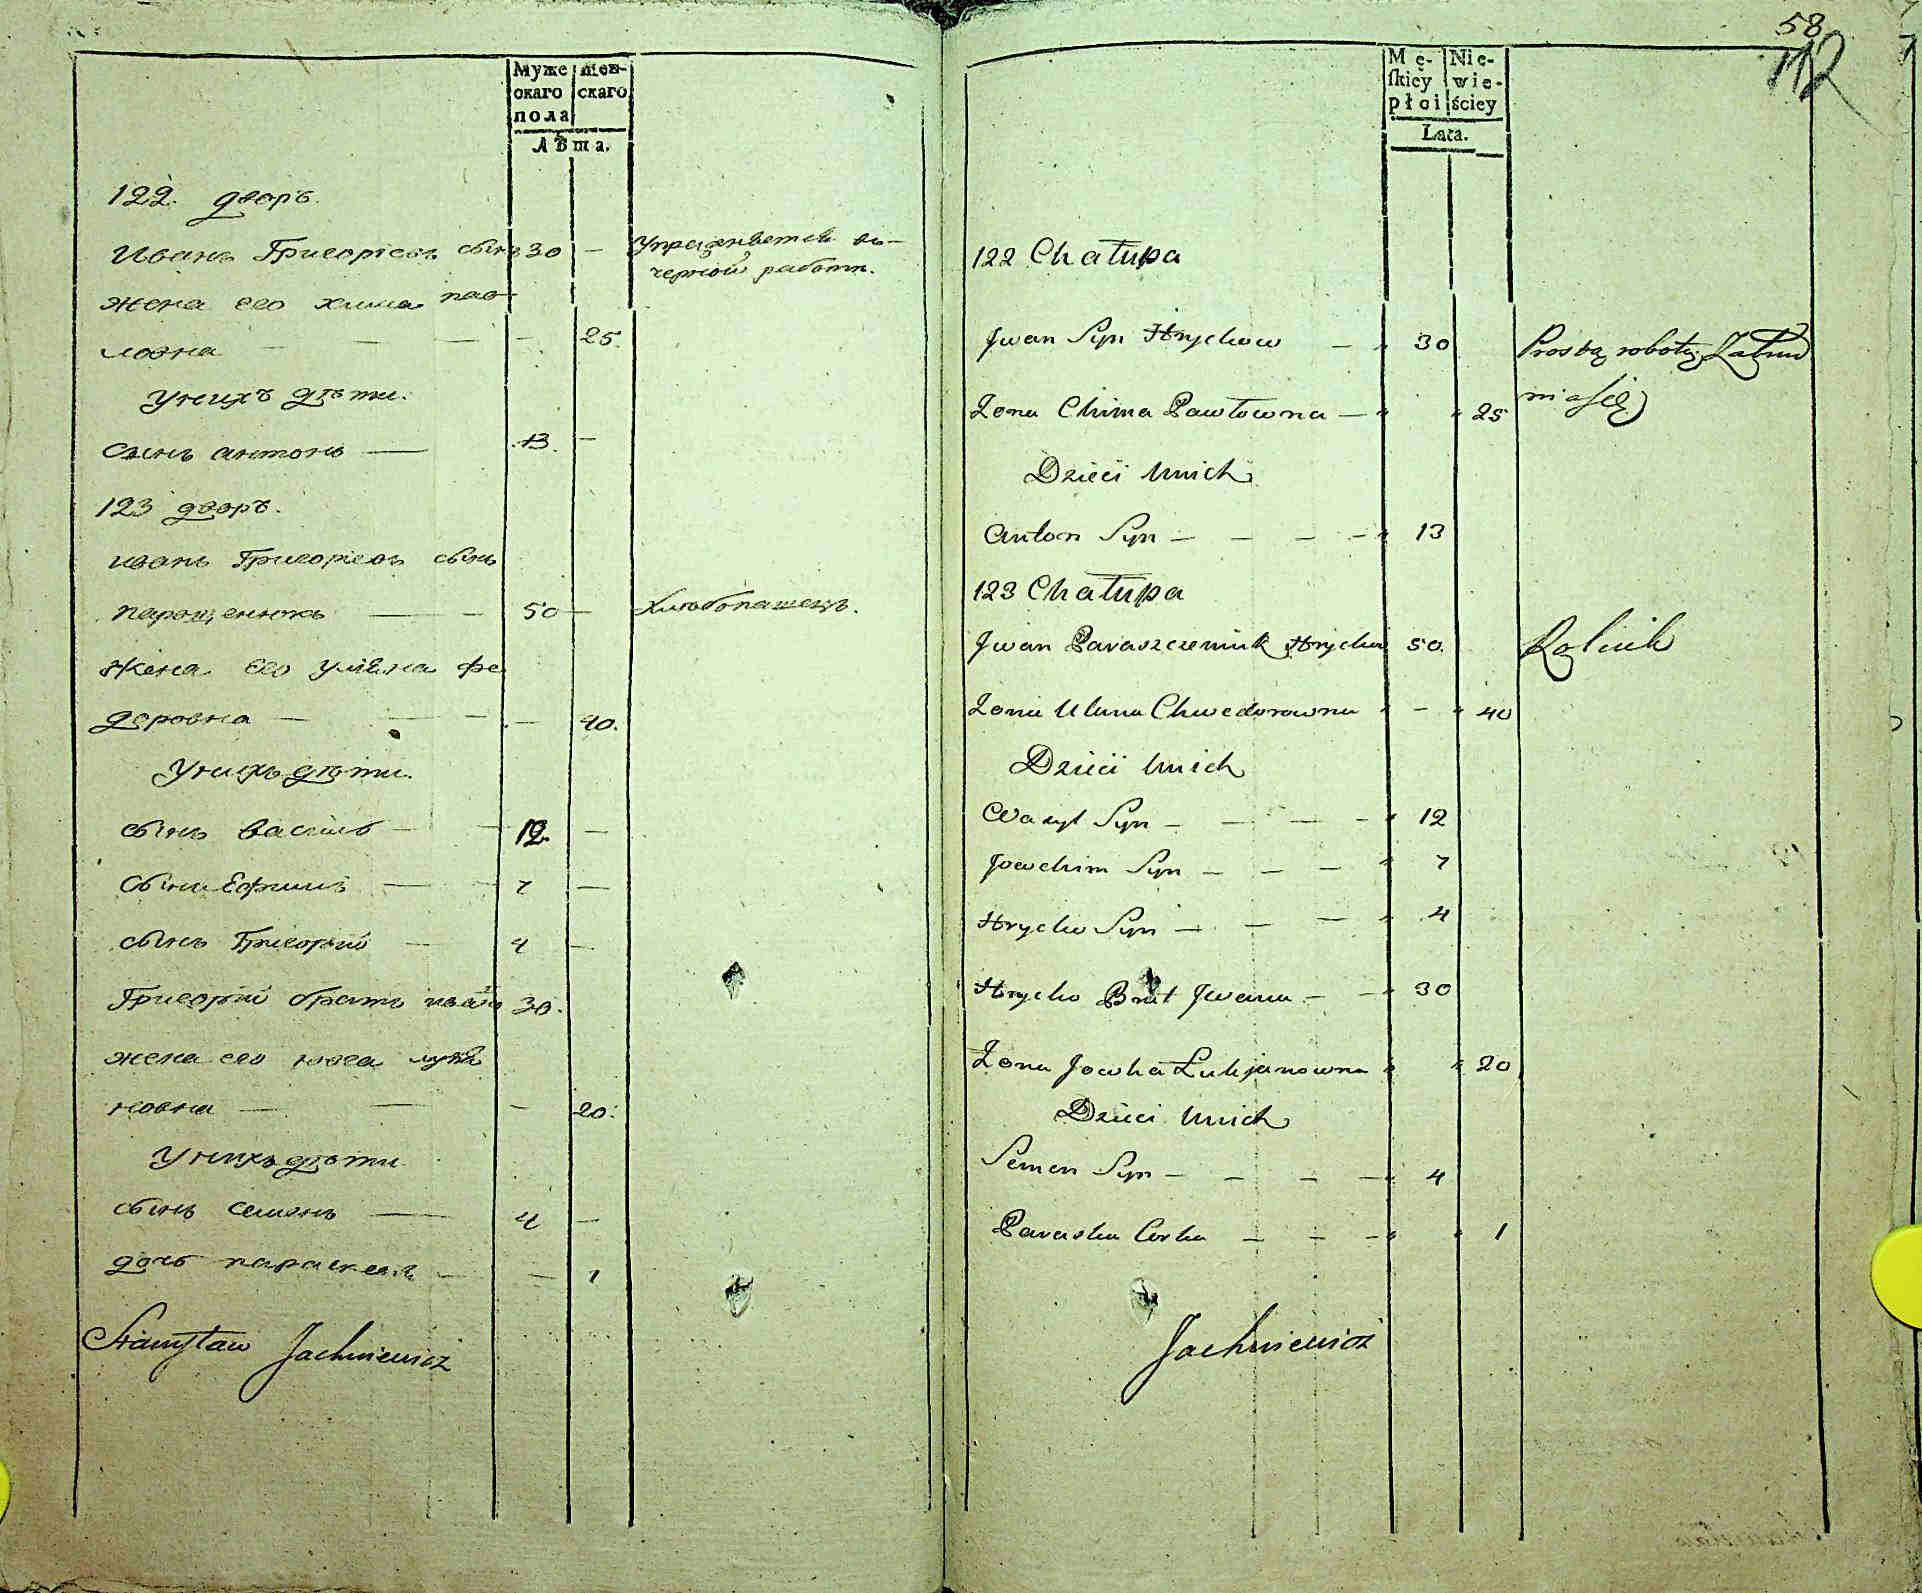 Муже
скаго
пола
жен-
скаго
Лѣта.
122. дворъ.
Иванъ Григорьевъ сынъ 30 — Упражняется въ
черной работѣ.
жена его хима пав-
ловна — — — — 25.
У нихъ дѣти.
сынъ антонъ — 13. —
123 дворъ.
иванъ Григорьевъ сынъ
паращенюкъ — — 50 — Хлѣбопашецъ.
жена его уляна фе
доровна — — — — 40.
У нихъ дѣти.
сынъ василь — — 12. —
сынъ Ефимъ — — 7 —
сынъ Григорий — 4 —
Григорий братъ ивана 30.
жена его юзва лукя
новна — — — 20.
У нихъ дѣти
сынъ семенъ — 4 —
дочь параскевия — — 1
Stanisław Jachniewicz
58
112
Mę-
skiey
płci
Nie-
wie-
ściey
Lata.
122 Chałupa
Jwan Syn Hrychow — " 30 Prostą robotą Zatrud
nia się
Zona Chima Pawłowna — " " 25
Dzieci Unich
Anton Syn — — — — " 13
123 Chałupa
Jwan Paraszczeniuk Hrychow 50. Rolnik
Zona Ulana Chwedorowna " — " 40
Dzieci Unich
Wasyl Syn — — — — " 12
Jowchim Syn — — — " 7
Hrycko Syn — — — " 4
Hrycko Brat Jwana — — " 30
Zona Jowha Łukjanowna " " 20
Dzieci Unich
Semen Syn — — — — " 4
Paraska Corka — — — " " 1
Jachniewicz